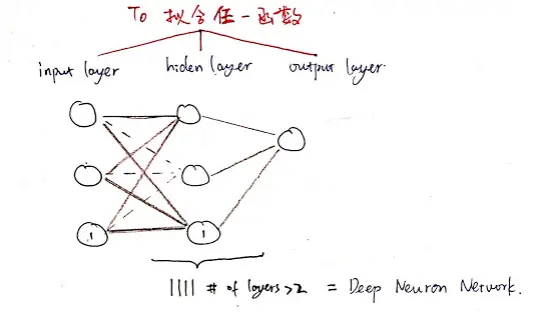 To 拟合任一函数
input layer hiden layer output layer
1 1
|||| # of layers >2 = Deep Neuron Network.